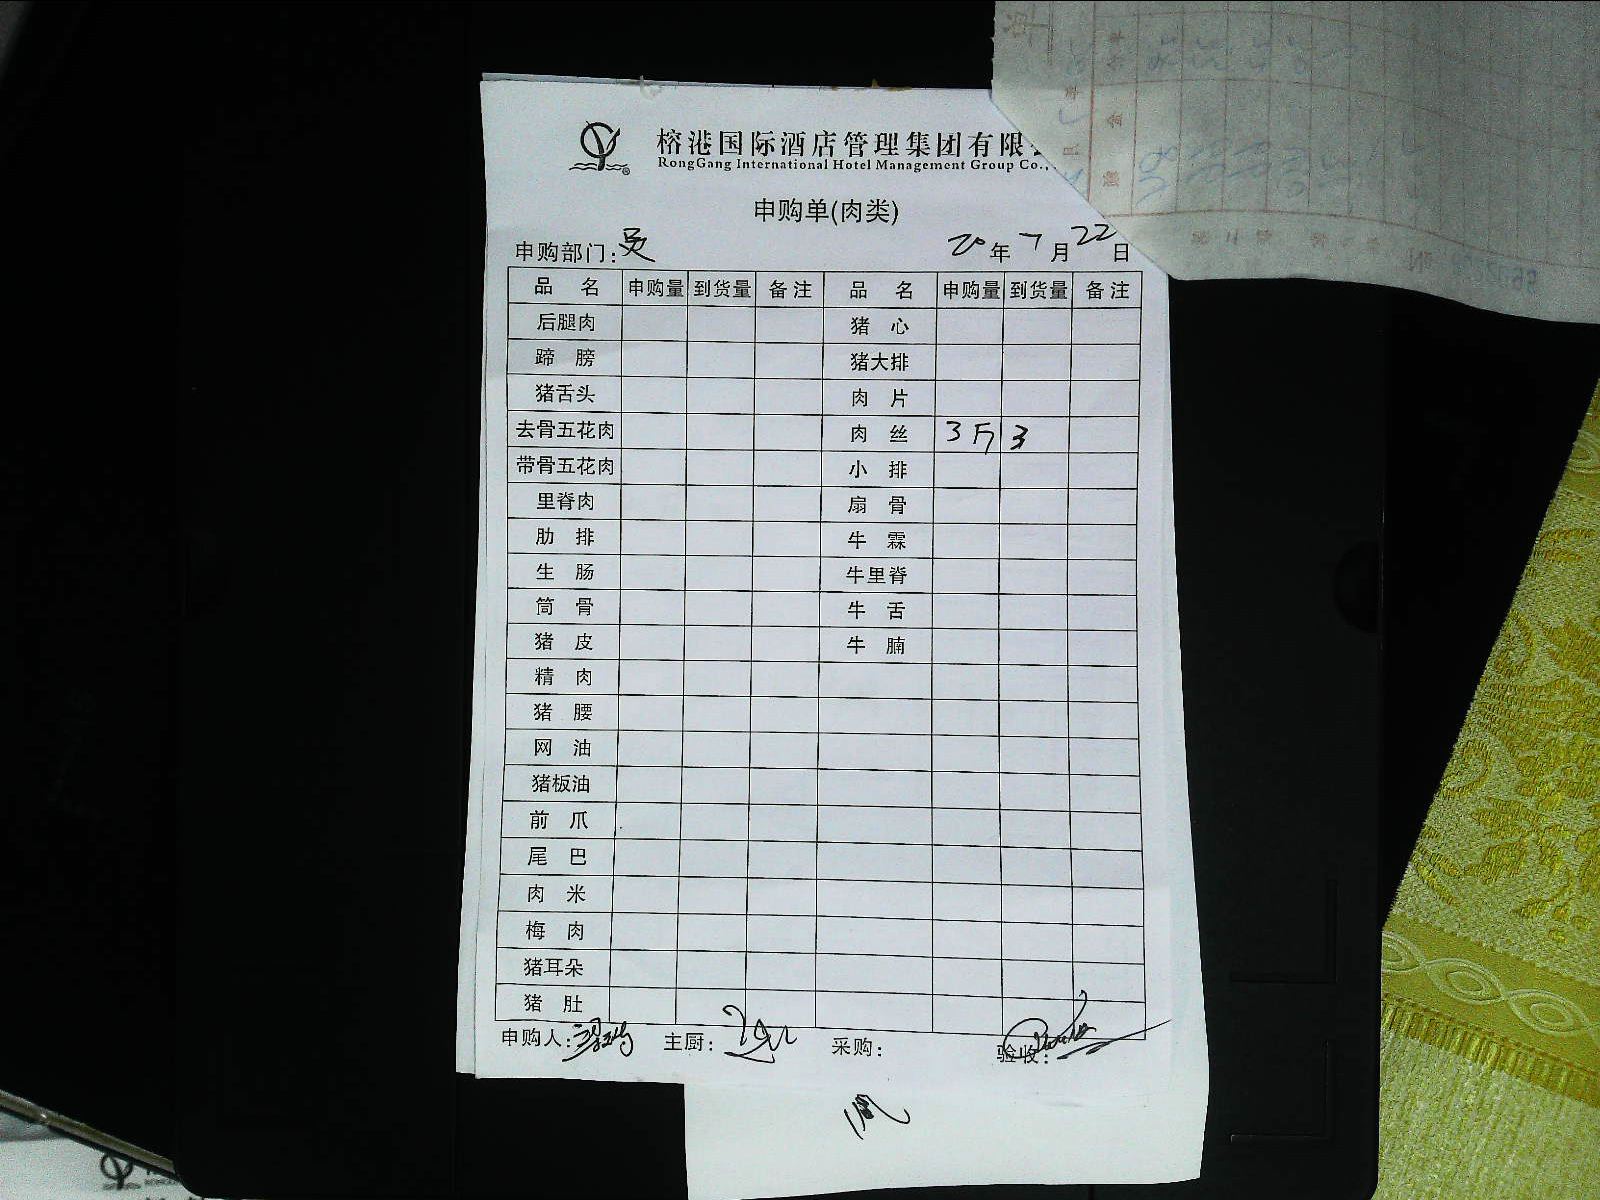 榕港国际酒店管理集团有限
RongGang International Hotel Management Group Co.,
申购单(肉类)
申购部门: 20年7月22日
品名 申购量 到货量 备注 品名 申购量 到货量 备注
后腿肉 猪心
蹄膀 猪大排
猪舌头 肉片
去骨五花肉 肉丝 3斤 3
带骨五花肉 小排
里脊肉 扇骨
肋排 牛霖
生肠 牛里脊
筒骨 牛舌
猪皮 牛腩
精肉
猪腰
网油
猪板油
前爪
尾巴
肉米
梅肉
猪耳朵
猪肚
申购人: 主厨: 采购: 验收: